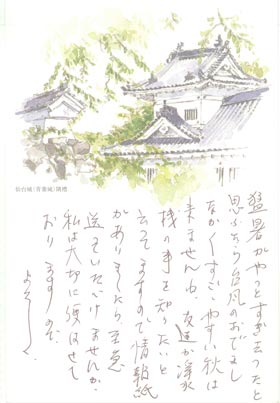 仙台城(青葉城)隅櫓
猛暑がやっとすぎ去ったと
思ふたら台風のおでまし
なかなかすごしやすい秋は
来ませんね。友達が浄家
様の事を知りたいと
云ってますので情報紙
がありましたら至急
送っていただけませんか。
私は大切に保存させて
おりますので。
よろしく